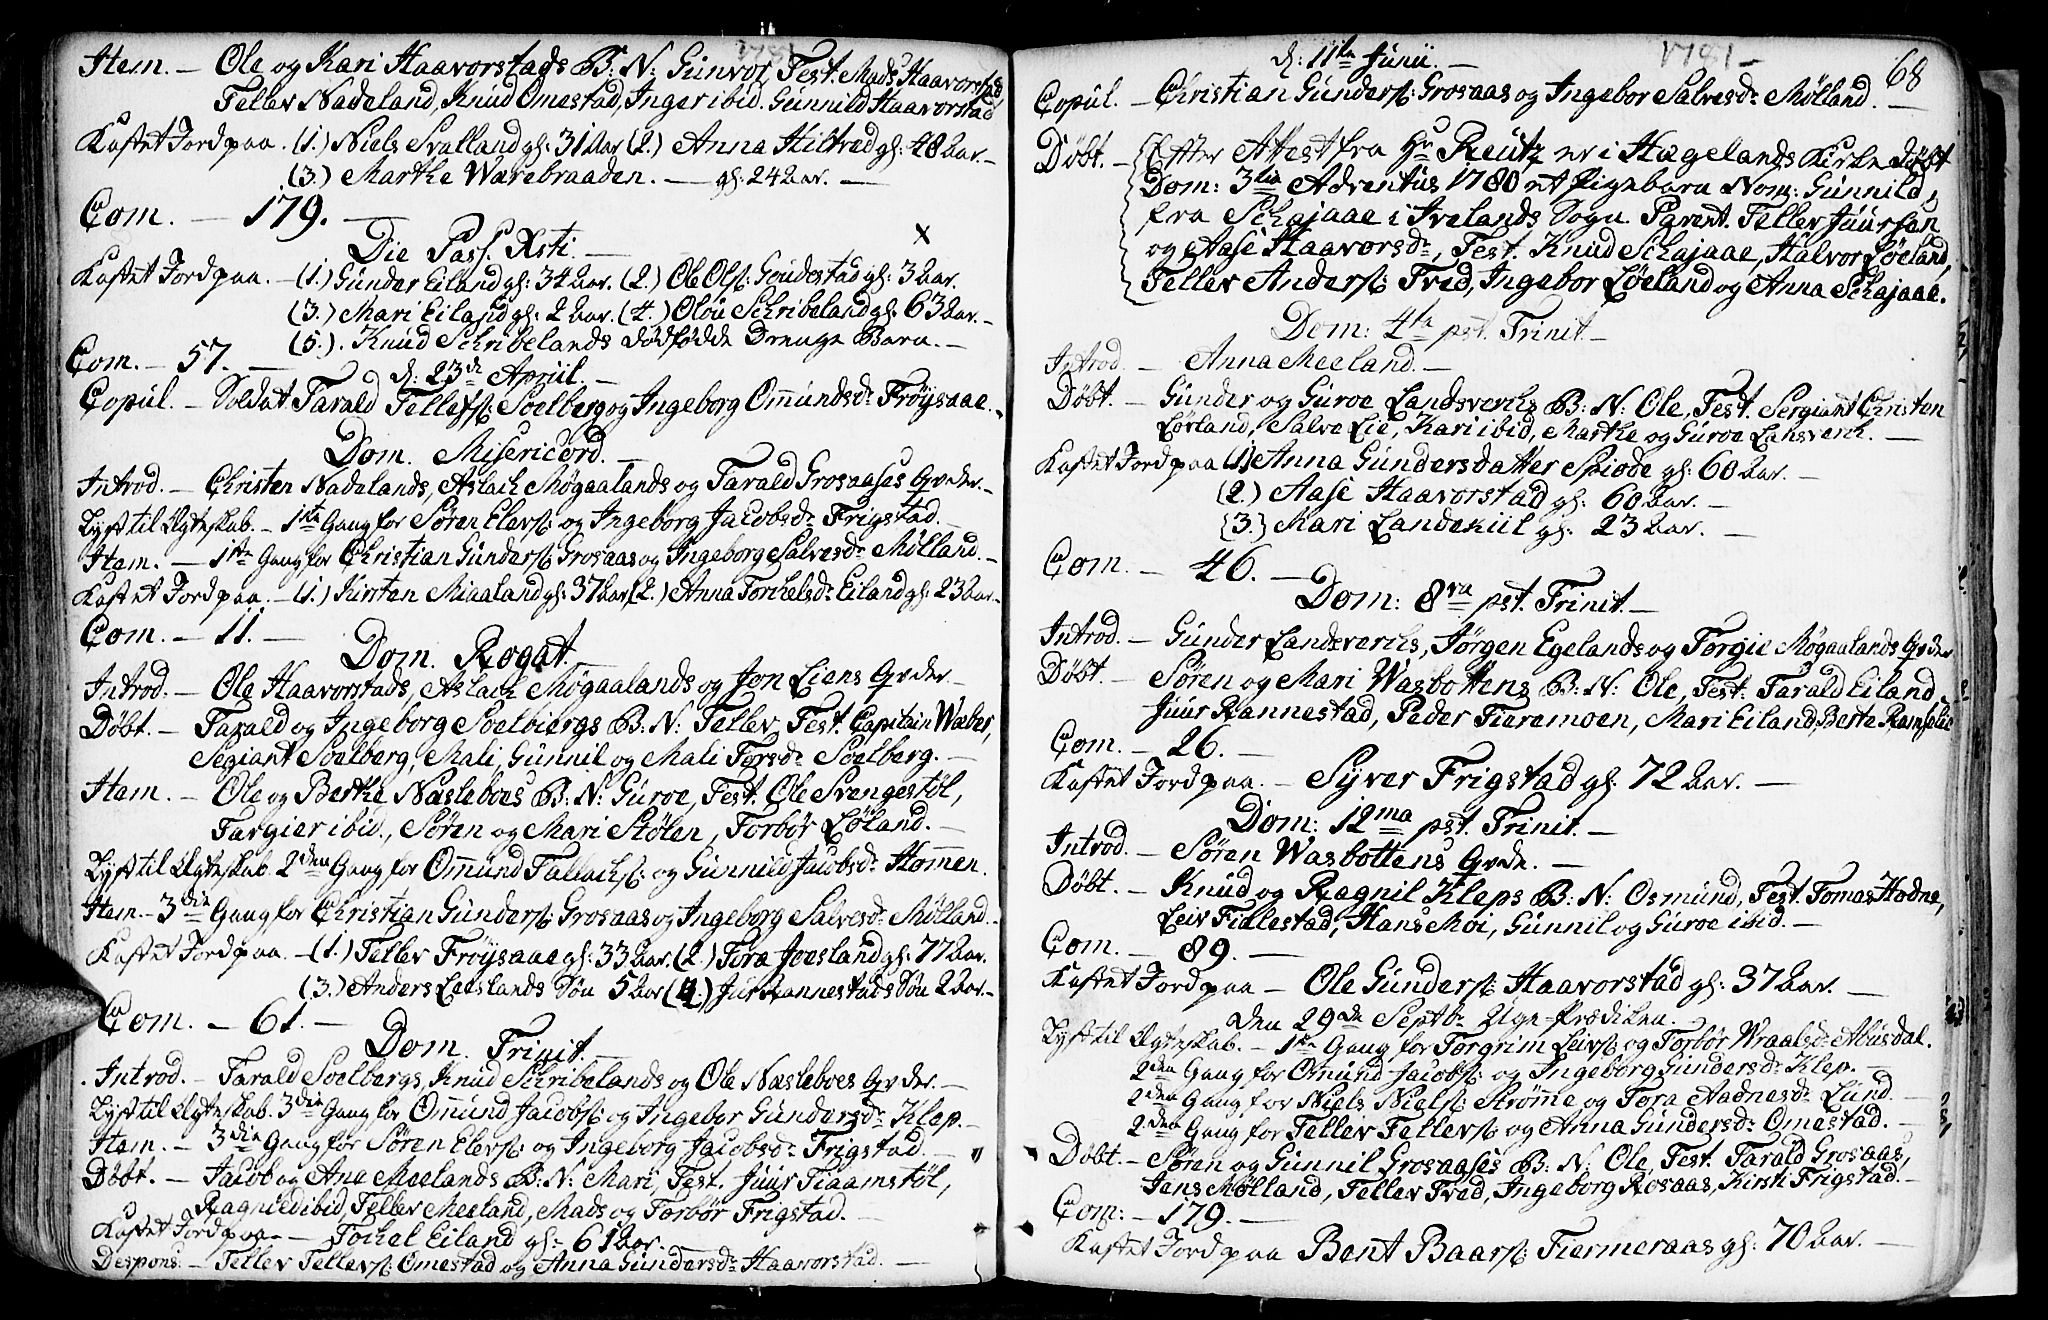 1781
Item. – Ole og Kari Haavorstads B: N: Gunvor, Test. Mads Haavorstad
Tellev Nadeland, Knud Omestad, Inger ibid. Gunnild Haavorstad
Kastet Jord paa. (1.) Niels Svalland gl: 31 Aar (2.) Anna Hiltrad gl: 48 Aar. –
(3.) Marthe Wærebraaden. – gl: 24 Aar. –
Com. – 179. –
Die Pass. Xsti. –
Kastet Jord paa. – (1.) Gunder Eiland gl: 34 Aar. (2.) Ole Ols: Goudestad gl: 3 Aar.
(3.) Mari Eiland gl: 2 Aar. (4.) Olou Schribeland gl: 63 Aar. –
(5.). Knud Schribelands dødfødde Drenge Barn. –
Com. – 57. –
d: 23de Apriil. –
Copul. – Soldat Tarald Tellefs: Soelberg og Ingeborg Omundsdr Frøysaae. –
Dom. Misericord. –
Introd. – Christen Nadelands, Aslach Møgaalands og Tarald Grosaases Qvder. –
Lyst til Ægteskab. – 1ste Gang for Søren Elevs: og Ingeborg Jacobsdr Frigstad. –
Item. – 1ste Gang for Christian Gunders: Grosaas og Ingeborg Salvesdr Mølland. –
Kastet Jord paa. – (1.) Kirsten Miaaland gl: 37 Aar, (2.) Anna Torchelsdr Eiland gl: 23 Aar. –
Com. – 11. –
Dom. Rogat. –
Introd. – Ole Haavorstads, Aslach Møgaalands og Jon Liens Qvder. –
Døbt. – Tarald og Ingeborg Soelbiergs B: N: Tellev, Test. Capitain Wæber,
Segiant Soelberg, Mali, Gunnil og Mali Torsdr Soelberg. –
Item. – Ole og Berthe Næsleboes B: N: Guroe, Test. Ole Svengestøl,
Targier ibid., Søren og Mari Stølen, Torbør Løland. –
Lyst til Ægteskab. 2den Gang for Omund Tallachs: og Gunnild Jacobsdr Hommen.
Item. – 3die Gang for Christian Gunders: Grosaas og Ingeborg Salvesdr Mølland. –
Kastet Jord paa. – (1.) Tellev Frøysaae gl: 33 Aar. (2.) Tora Joesland gl: 77 Aar.
(3.) Anders Leeslands Søn 5 Aar (4.) Jur Rannestads Søn 2 Aar. –
Com. – 61. –
Dom. Trinit. –
Introd. – Tarald Soelbergs, Knud Schribelands og Ole Næsleboes Qvder. –
Lyst til Ægteskab. 3die Gang for Omund Jacobs: og Ingebor Gundersdr Klep. –
Item. – 3die Gang for Søren Elevs: og Ingeborg Jacobsdr Frigstad. –
Døbt. – Jacob og Ane Meelands B: N: Mari, Test. Juur Tiaamstøl,
Ragnild ibid, Tellev Meeland, Mads og Torbør Frigstad. –
Kastet Jord paa – – Tochel Eiland gl: 61 Aar.
Despons: – Tellev Tellevs: Omestad og Anna Gundersdr Haavorstad. –
1781 –
68
d: 11te Junii. –
Copul. – Christian Gunders: Grosaas og Ingebor Salvesdr Mølland. –
Døbt. – Efter Attest fra Hr Reutz er i Hægelands Kirke døbt
Dom: 3tia Adventus 1780 et Pigebarn Nom: Gunnild,
fra Schajaae i Ivelands Sogn. Parent. Tellev Juursøn
og Aase Haavorsdr, Test. Knud Schajaae, Halvor Løeland,
Tellev Anders: Tved, Ingebor Løeland og Anna Schajaae.
Dom: 4ta pst. Trinit. –
Introd. – Anna Meeland. –
Døbt. – Gunder og Guroe Landsverchs B: N: Ole, Test. Sergiant Christen
Løvland, Salve Lie, Kari ibid, Marthe og Guroe Lansverch. –
Kastet Jord paa (1.) Anna Gundersdatter Spiode gl: 60 Aar. –
(2.) Aase Haavorstad gl: 60 Aar. –
(3.) Mari Landekiil gl: 23 Aar. –
Com. – 46. –
Dom: 8va pst. Trinit. –
Introd. – Gunder Landsverchs, Jørgen Egelands og Torgie Møgaalands Qvder
Døbt. – Søren og Mari Wasbottens B: N: Ole, Test: Tarald Eiland,
Juur Rannestad, Peder Tieremoen, Mari Eiland, Berte Ramselie
Com. – 26. –
Kastet Jord paa. – Syver Frigstad gl: 72 Aar. –
Dom: 12ma pst. Trinit. –
Introd. – Søren Wasbottens Qvde. –
Døbt. – Knud og Ragnil Kleps B: N: Osmund, Test. Tomas Hodne,
Leiv Fiallestad, Hans Moi, Gunnil og Guroe ibid. –
Com. – 89. –
Kastet Jord paa – Ole Gunders: Haavorstad gl: 37 Aar. –
Den 29de Septbr Uge-Prædiken. –
Lyst til Ægteskab. – 1ste Gang for Torgrim Leivs: og Torbør Wraalsdr Mousdal.
2den Gang for Omund Jacobs: og Ingeborg Gundersdr Klep. –
2den Gang for Niels Niels: Strømme og Tora Aadnesdr Lund. –
2den Gang for Tellev Tellevs: og Anna Gundersdr Omestad. –
Døbt. – Søren og Gunnil Grosaases B: N: Ole, Test. Tarald Grosaas,
Jens Mølland, Tellev Tved, Ingeborg Rosaas, Kirsti Frigstad. –
Com: – 179. –
Kastet Jord paa Bent Baars: Tiermeraas gl: 70 Aar. –